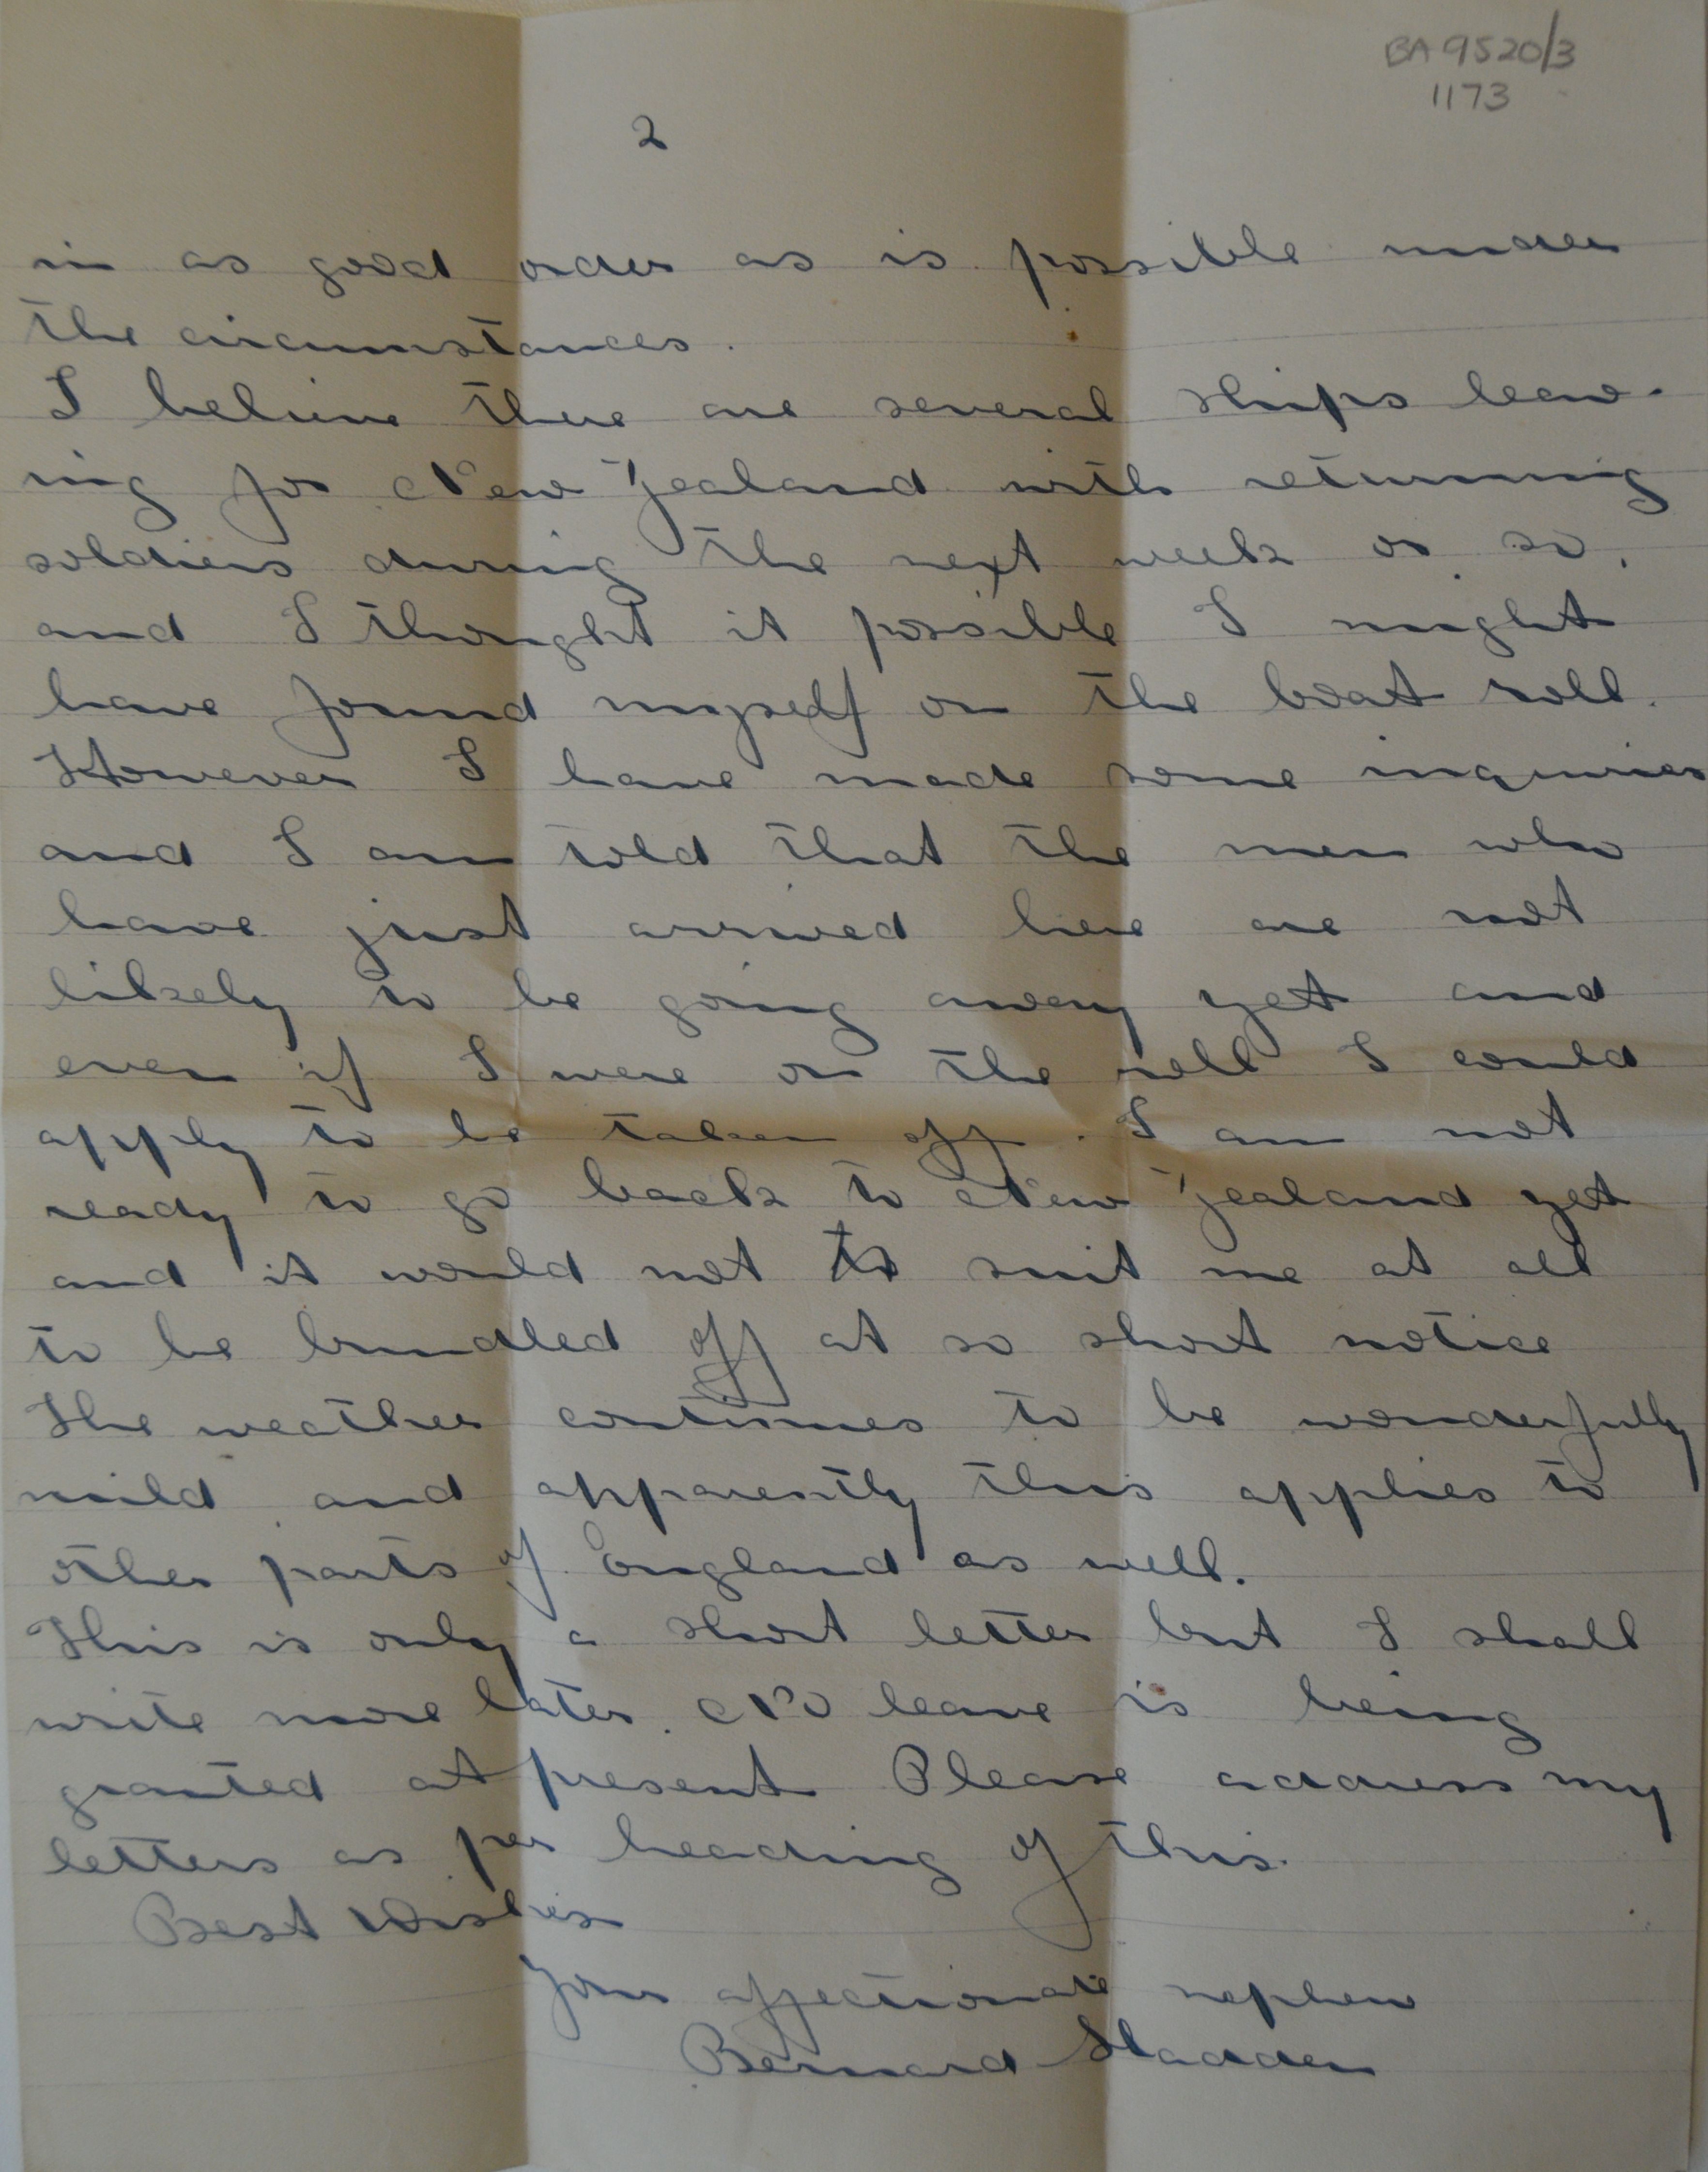 BA 9520/3
1173
2
in as good order as is possible under
the circumstances.
I believe there are several ships leav-
ing for New Zealand with returning
soldiers during the next week or so,
and I thought it possible I might
have found myself on the boat roll.
However I have made some inquiries
and I am told that the men who
have just arrived here are not
likely to be going away yet and
even if I were on the roll I could
apply to be taken off. I am not
ready to go back to New Zealand yet
and it would not to suit me at all
to be bundled off at so short notice
The weather continues to be wonderfully
mild and apparently this applies to
other parts of England as well.
This is only a short letter but I shall
write more later. No leave is being
granted at present Please address my
letters as per heading of this.
Best Wishes
Your affectionate nephew
Bernard Sladden